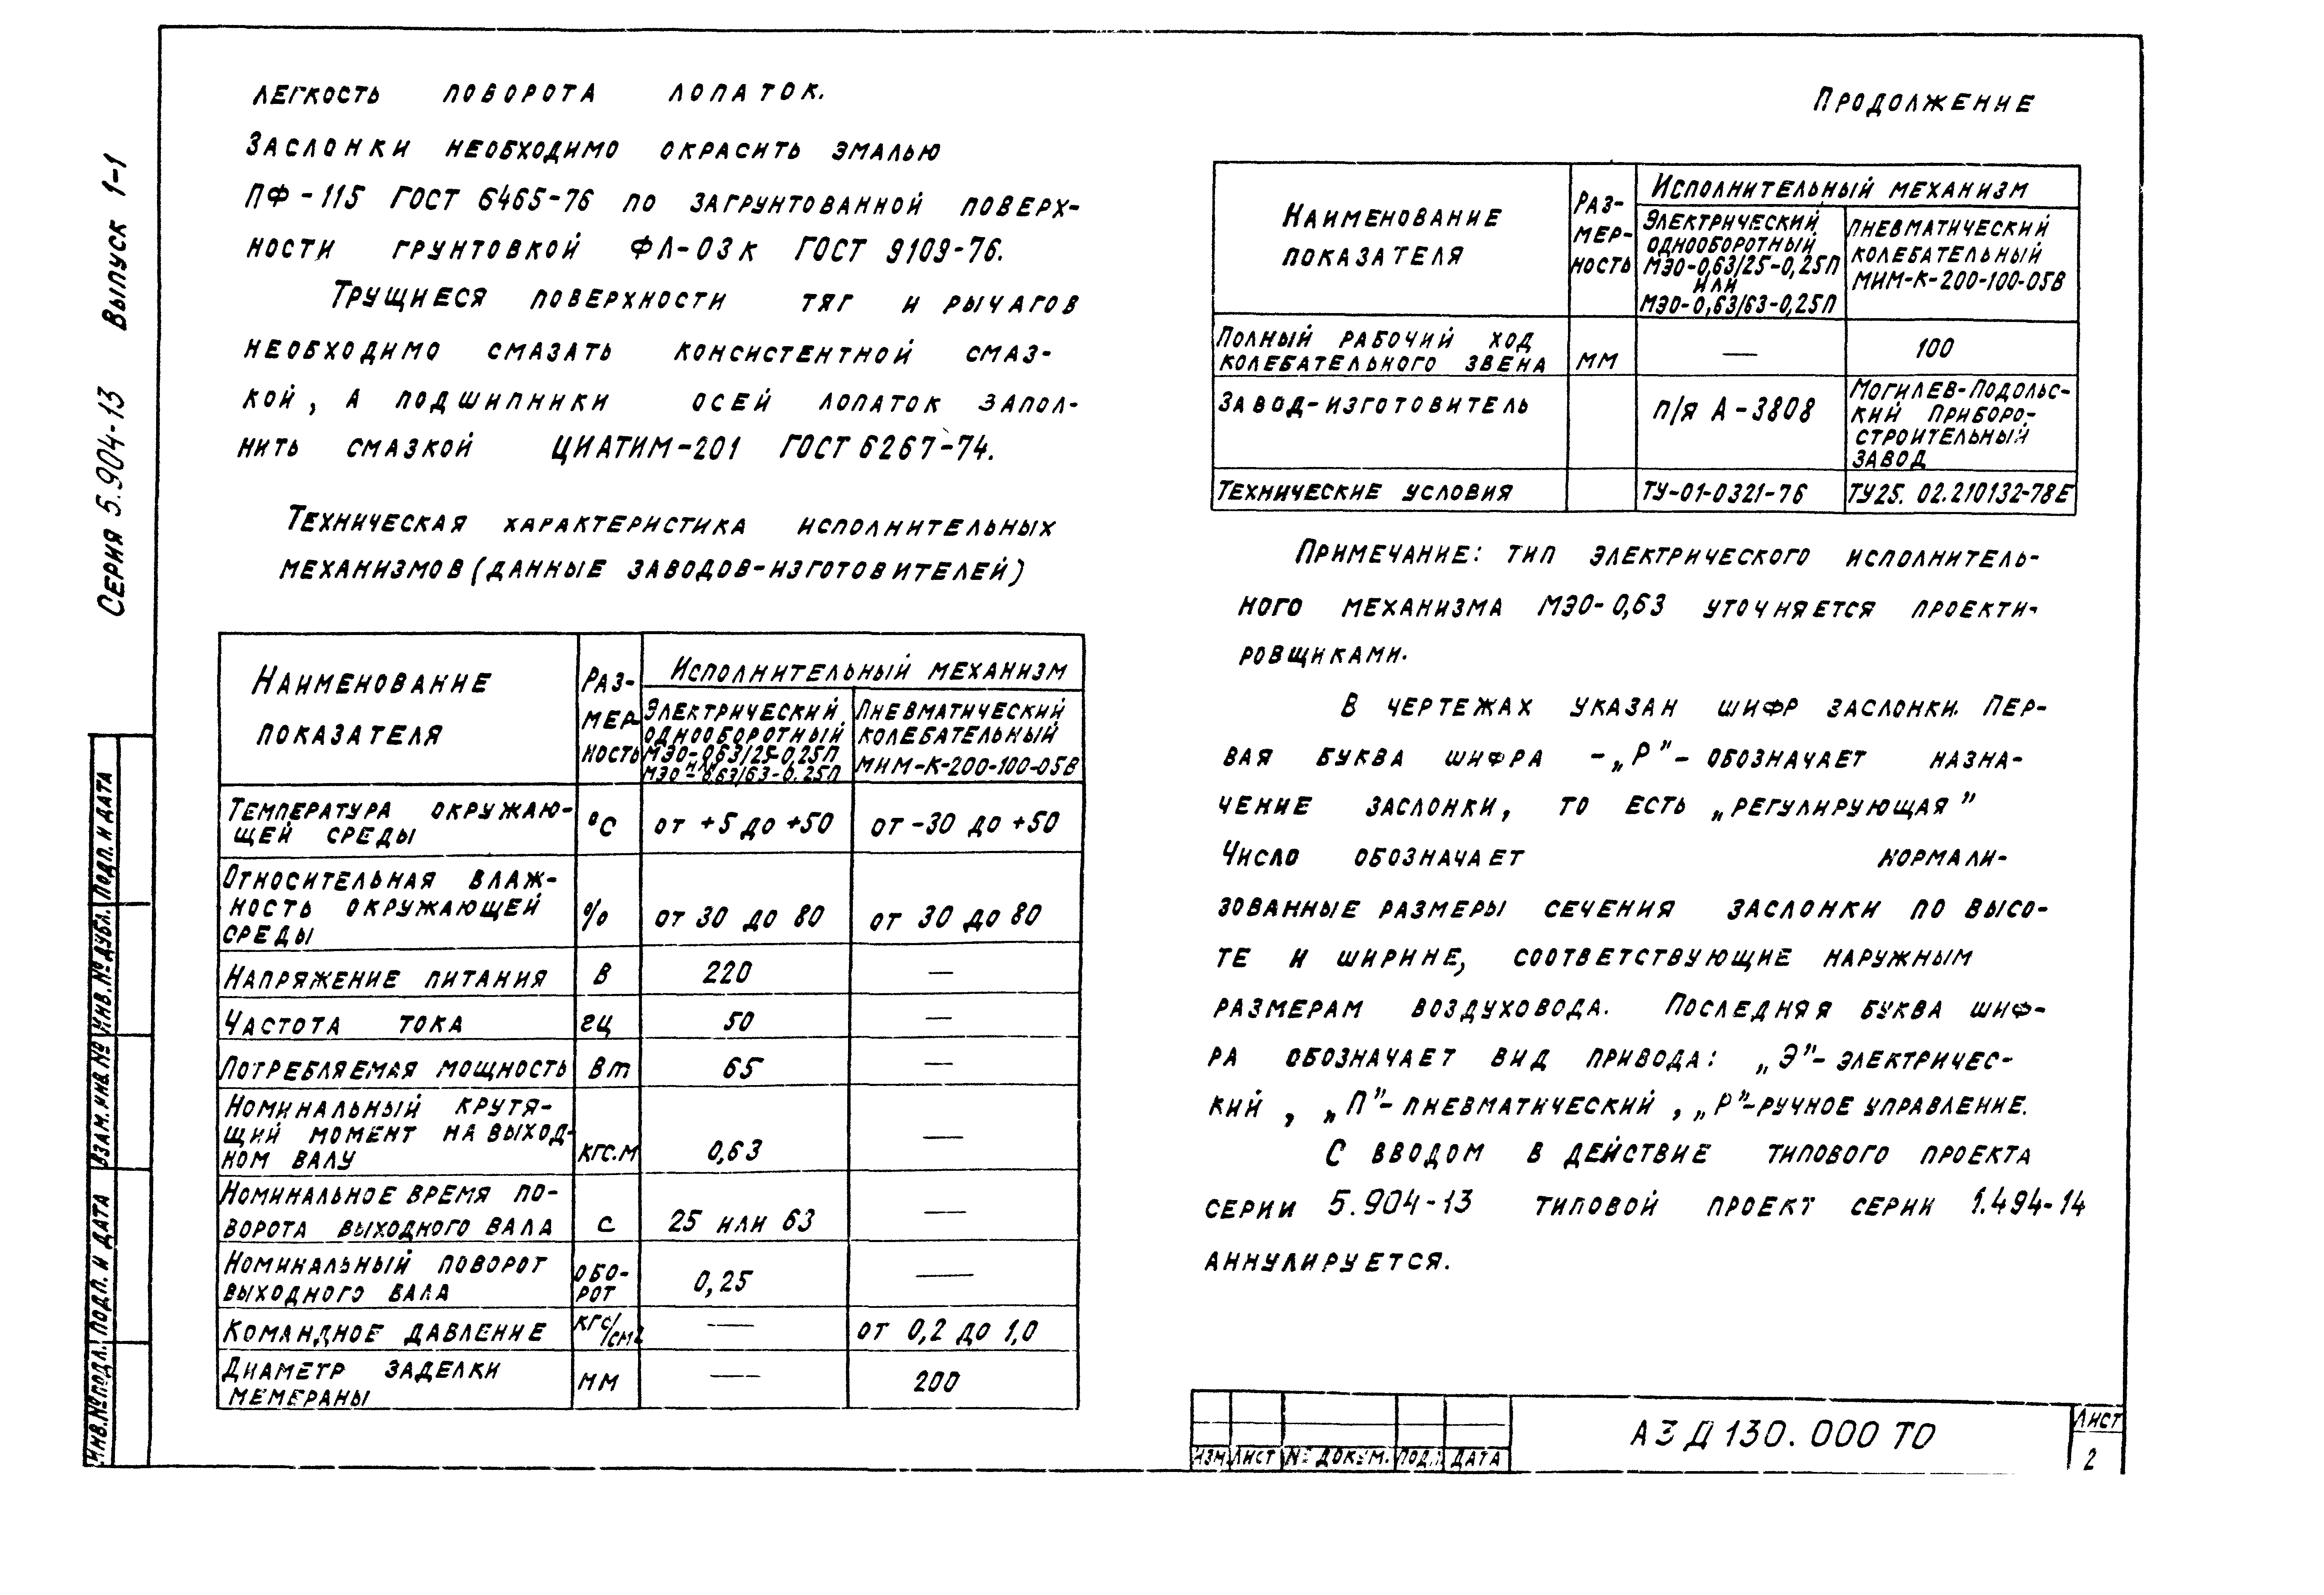 легкость поворота лопаток.
Заслонки необходимо окрасить эмалью
ПФ-115 ГОСТ 6465-76 по загрунтованной поверх-
ности грунтовкой ФЛ-03к ГОСТ 9109-76.
Трущиеся поверхности тяг и рычагов
необходимо смазать консистентной смаз-
кой, а подшипники осей лопаток запол-
нить смазкой ЦИАТИМ-201 ГОСТ 6267-74.
Техническая характеристика исполнительных
механизмов (данные заводов-изготовителей)
Наименование
показателя
Раз-
мер-
ность
Исполнительный механизм
Электрический
однооборотный
МЭО-0,63/25-0,25П
или
МЭО-0,63/63-0,25П
Пневматический
колебательный
МИМ-К-200-100-05В
Температура окружаю-
щей среды
°С
от +5 до +50
от -30 до +50
Относительная влаж-
ность окружающей
среды
%
от 30 до 80
от 30 до 80
Напряжение питания
В
220
—
Частота тока
гц
50
—
Потребляемая мощность
Вт
65
—
Номинальный крутя-
щий момент на выход-
ном валу
кгс.м
0,63
—
Номинальное время по-
ворота выходного вала
с
25 или 63
—
Номинальный поворот
выходного вала
обо-
рот
0,25
—
Командное давление
кгс/
/см2
—
от 0,2 до 1,0
Диаметр заделки
мемераны
мм
—
200
Продолжение
Наименование
показателя
Раз-
мер-
ность
Исполнительный механизм
Электрический
однооборотный
МЭО-0,63/25-0,25П
или
МЭО-0,63/63-0,25П
Пневматический
колебательный
МИМ-К-200-100-05В
Полный рабочий ход
колебательного звена
мм
—
100
Завод-изготовитель
п/я А-3808
Могилев-Подольс-
кий приборо-
строительный
завод
Технические условия
ТУ-01-0321-76
ТУ25. 02.210132-78Е
Примечание: тип электрического исполнитель-
ного механизма МЭО-0,63 уточняется проекти-
ровщиками.
В чертежах указан шифр заслонки. Пер-
вая буква шифра -„Р"- обозначает назна-
чение заслонки, то есть „регулирующая"
Число обозначает нормали-
зованные размеры сечения заслонки по высо-
те и ширине, соответствующие наружным
размерам воздуховода. Последняя буква шиф-
ра обозначает вид привода: „Э"- электричес-
кий, „П"- пневматический, „Р"-ручное управление.
С вводом в действие типового проекта
серии 5.904-13 типовой проект серии 1.494-14
аннулируется.
Серия 5.904-13 Выпуск 1-1
Инв.№подл.
Подп. и дата
Взам.инв.№
Инв.№дубл.
Подп. и дата
Изм
Лист
№ докум.
Подп
Дата
А3Д130.000ТО
Лист
2